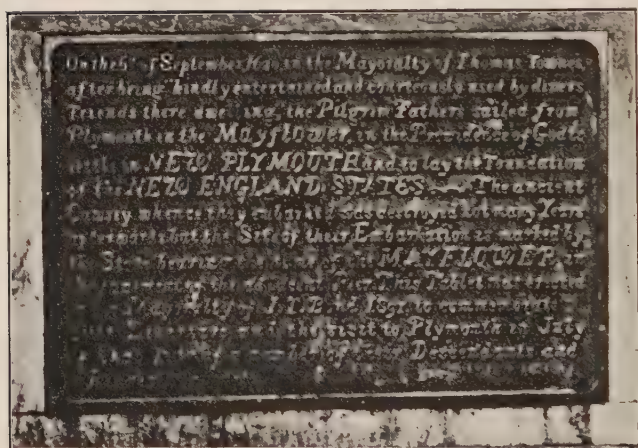 On the 6th of September 1620 in the Mayoralty of Thomas Townes
after being kindly entertained and courteously used by divers
Friends there dwelling, the Pilgrim Fathers sailed from
Plymouth in the Mayflower, in the Providence of God to
settle in NEW PLYMOUTH and to lay the Foundation
of the NEW ENGLAND STATES The ancient
Cawsey whence they embarked was destroyed not many Years
afterwards but the Site of their Embarkation is marked by
the Stone bearing the name of the MAYFLOWER in
the pavement of the adjacent Pier. This Tablet was erected
in the Mayoralty of J. T. Bond 1891 to commemorate
their Departure and the visit to Plymouth in July
of a number of their Descendants and